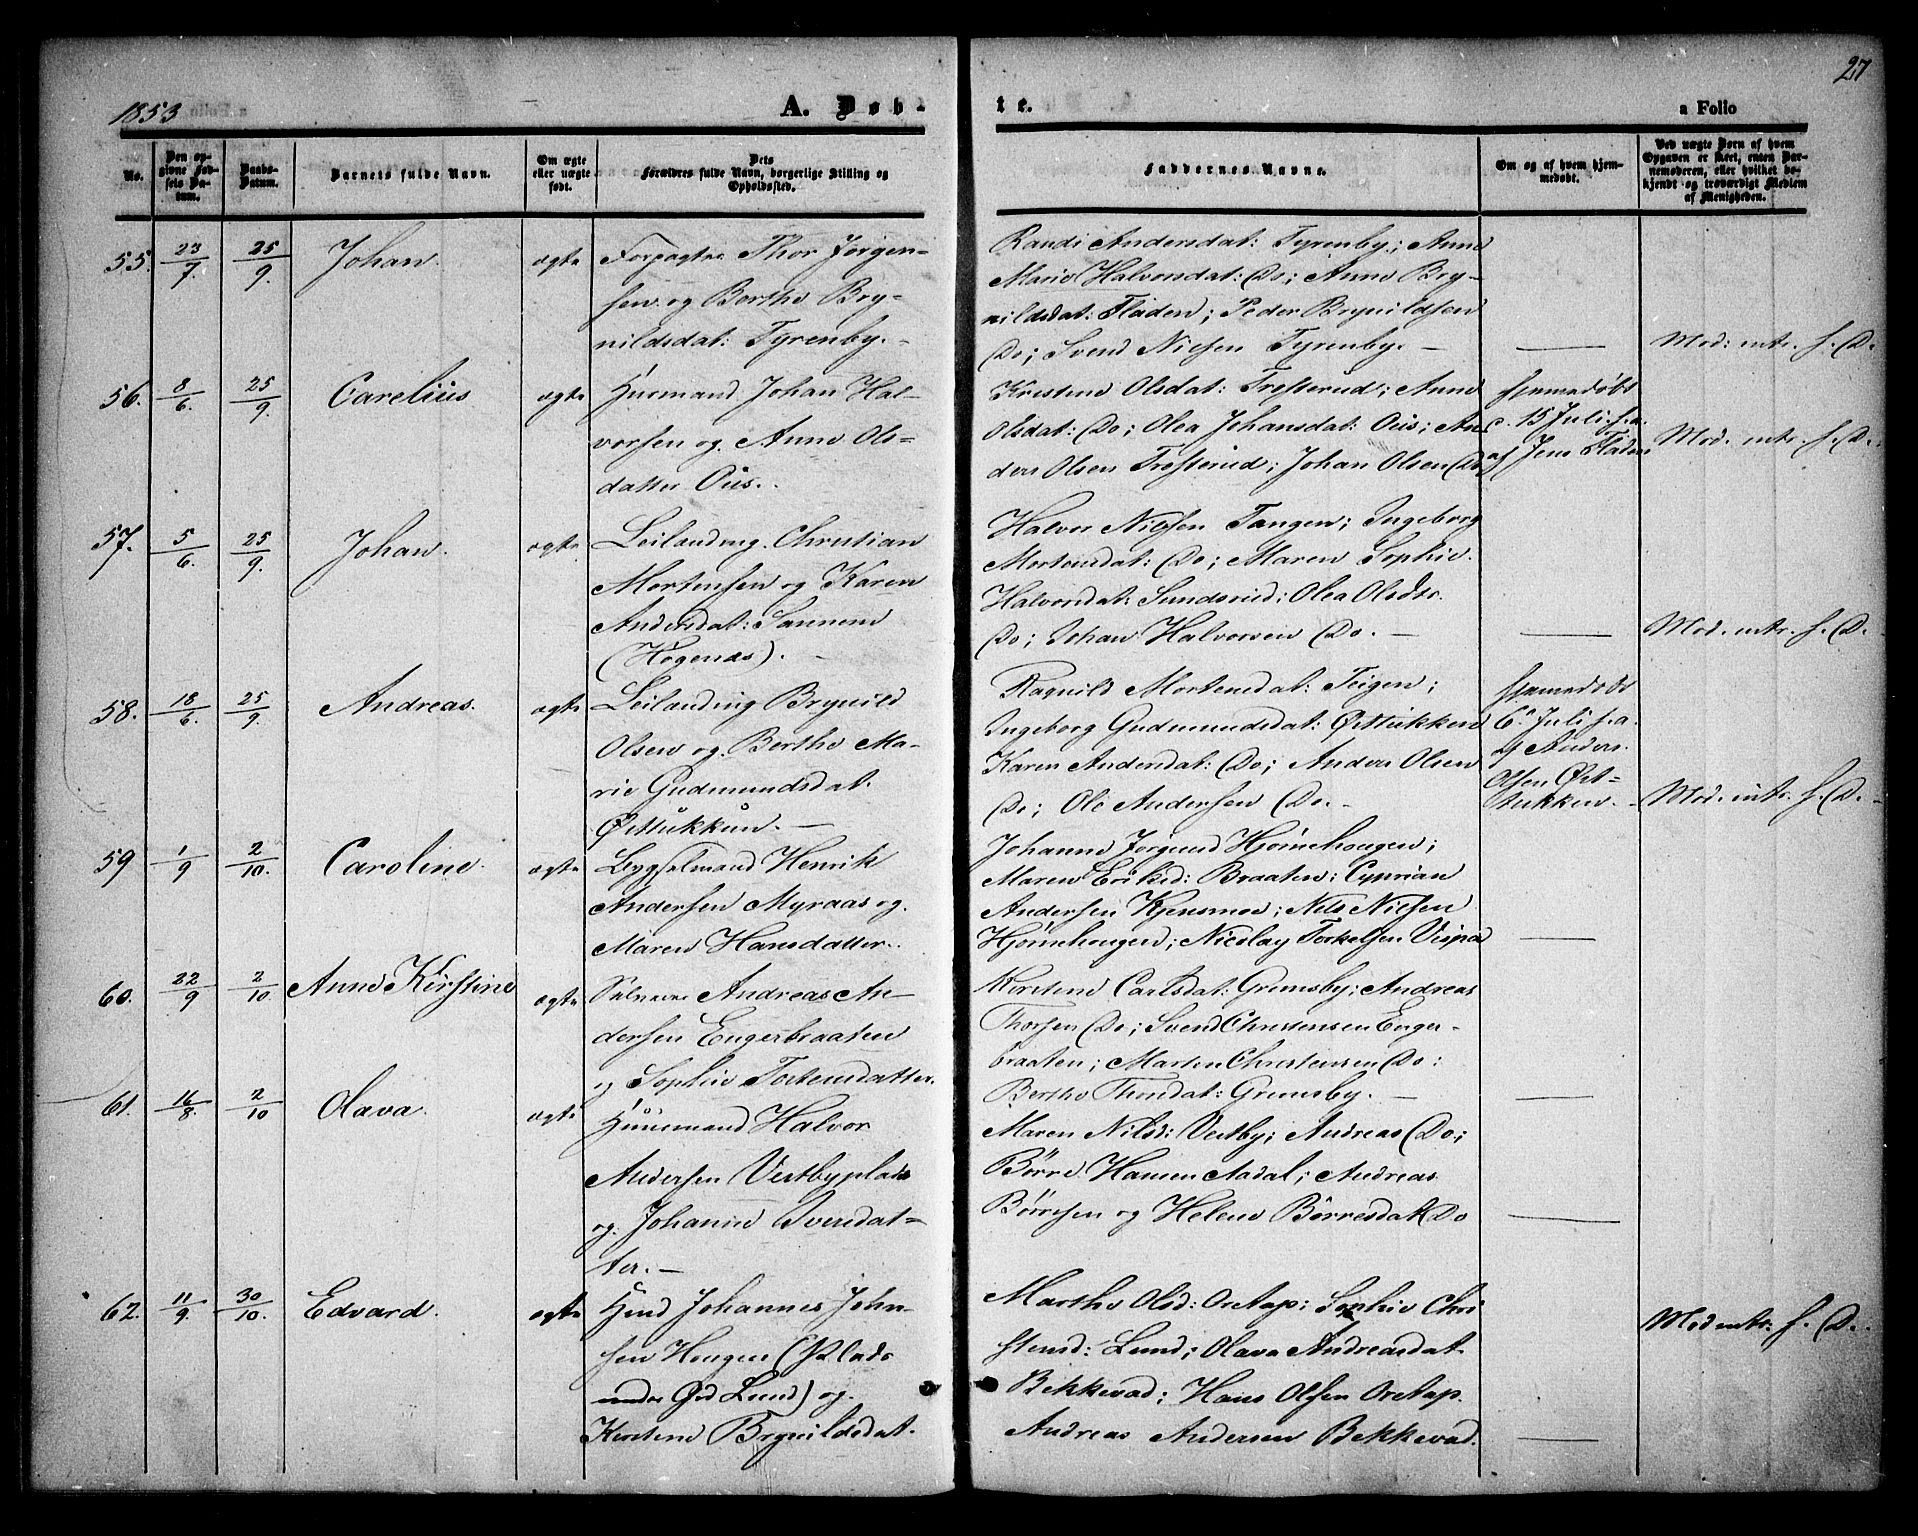 1853
A. Døb-
te.
a Folio
27
No.
Den op-
givne Fød-
sels Da-
tum.
Daabs-
Datum.
Barnets fulde Navn.
Om ægte
eller uægte
født.
Dets
Forældres fulde Navn, borgerlige Stilling og
Opholdssted.
Faddernes Navne.
Om og af hvem hjem-
medøbt.
Ved uægte Børn af hvem
Opgaven er skeet, enten Bar-
nemoderen, eller hvilket be-
kjendt og troværdigt Medlem
af Menigheden.
55. 23/7. 25/9. Johan. ægte
Forpagter Thor Jørgen-
sen og Berthe Bry-
nildsdat: Tyrenby. -
Randi Andersdat: Tyrenby; Anne
Marie Halvorsdat: Do; Anne Bry-
nildsdat: Fladen; Peder Brynildsen
Do; Svend Nielsen Tyrenby. -
Mod: intr. f. D.
56. 8/6. 25/9. Carelius ægte
Huusmand Johan Hal-
vorsen og Anne Ols-
datter Ous.
Kristene Olsdat: Trefserud; Anne
Olsdat: Do; Olea Johansdat: Ous; An-
ders Olsen Trefserud; Johan Olsen Do
Hjemmedøbt
d. 15 Juli f. a.
af Jens Fladen
Mod. intr. f. D.
57. 5/6. 25/9. Johan. ægte
Leilænding Christian
Mortensen og Karen
Andersdat: Sannem
(Høgenæs). -
Halvor Nilsen Tangen; Ingeborg
Mortensdat: Do; Maren Sophie
Halvorsdat: Sundsrud; Olea Olsdtr.
Do; Johan Halvorsen Do. -
Mod. intr. f. D.
58. 18/6. 25/9. Andreas. ægte
Leilænding Brynild
Olsen og Berthe Ma-
rie Gudmundsdat.
Østtukkun. -
Ragnild Mortensdat: Teigen;
Ingeborg Gudmundsdat: Østtukken
Karen Andersdat: Do; Anders Olsen
Do; Ole Andersen Do. -
Hjemmedøbt
6. Juli f. a.
af Anders
Olsen Øst-
tukken. -
Mod. intr. f. D. -
59 1/9 2/10. Caroline. ægte
Bygselmand Henrik
Andersen Myraas og
Maren Hansdatter.
Johanne Jørgensd Hjørnehougen;
Maren Eriksd: Braaten; Cyprian
Andersen Kjensmoe; Nels Nielsen
Hjørnehougen; Nicolay Torkelsen Vispaa
60. 22/9 2/10 Anne Kirstine ægte
Andreas An-
dersen Engerbraaten
og Sophie Tostensdatter.
Kirstene Carlsdat: Grimsby; Andreas
Thorsen Do; Svend Christensen Enger-
braaten; Marten Christensen Do:
Berthe Thorsdat: Grimsby. -
61. 16/8. 2/10 Olava. ægte
Huusmand Halvor
Andersen Vestbyplads
og Johanne Iversdat-
ter. -
Maren Nilsd: Vestby; Andreas Do;
Børre Hansen Aadal; Andreas
Børresen og Helene Børresdat Do
62. 11/9. 30/10. Edvard. ægte
Hmd Johannes John-
sen Hougen (Plads
under Grd Lund) og
Kirstene Brynildsdat.
Marthe Olsd: Oretap; Sophie Chri
stensd: Lund; Olava Andreasdat.
Bekkevad; Hans Olsen Oretap.
Andreas Andersen Bekkevad.
Mod intr: f. D.